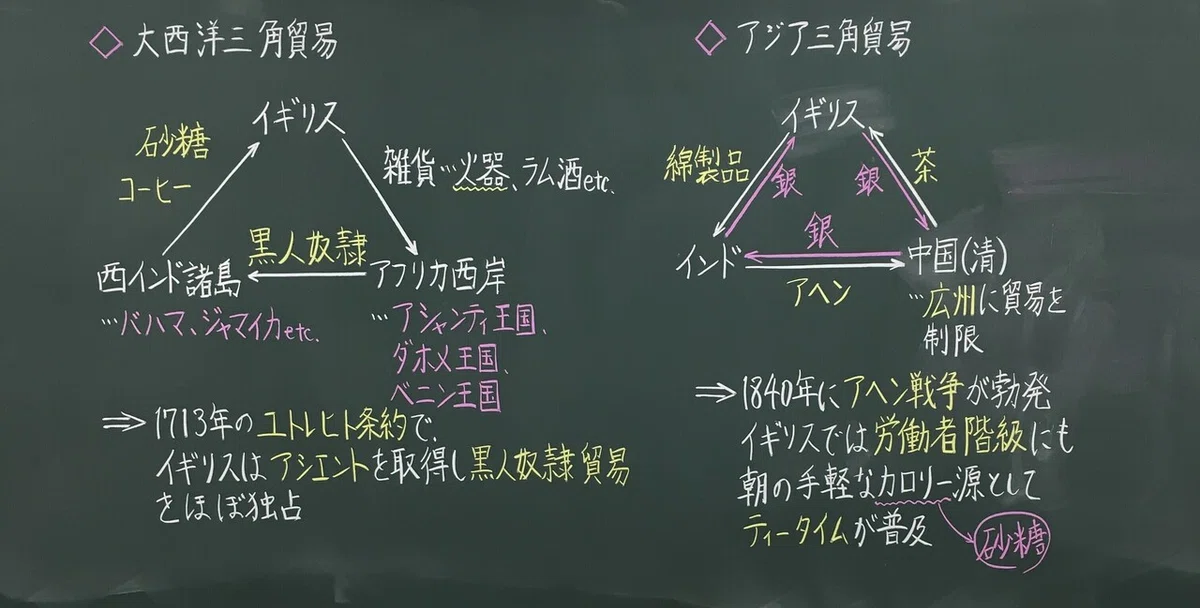 ◇ 大西洋三角貿易
イギリス
砂糖
コーヒー
雑貨…火器、ラム酒etc.
黒人奴隷
西インド諸島
アフリカ西岸
…バハマ、ジャマイカetc.
…アシャンティ王国、
ダホメ王国、
ベニン王国
⇒1713年のユトレヒト条約で、
イギリスはアシエントを取得し黒人奴隷貿易
をほぼ独占
◇ アジア三角貿易
イギリス
綿製品
銀
銀
茶
銀
インド
中国(清)
アヘン
…広州に貿易を
制限
⇒1840年にアヘン戦争が勃発
イギリスでは労働者階級にも
朝の手軽なカロリー源として
ティータイムが普及
砂糖